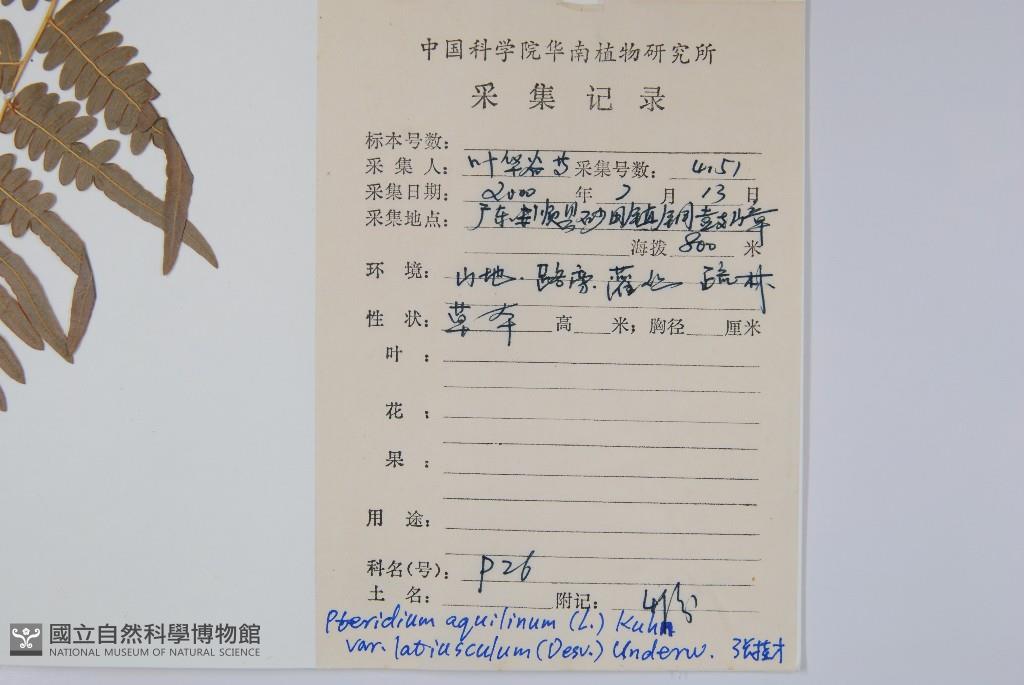 中国科学院华南植物研究所
采集记录
标本号数:
采集人: 叶华谷等 采集号数: 4151
采集日期: 2000 年 7 月 13 日
采集地点: 广东丰顺县砂田镇铜鼓嶂
海拨 800 米
环境: 山地. 路旁. 灌丛 疏林
性状: 草本 高 米; 胸径 厘米
叶:
花:
果:
用途:
科名(号): P26
土名: 附记: 4份
Pteridium aquilinum (L.) Kuhn
var. latiusculum (Desv.) Underw. 张桂才
國立自然科學博物館
NATIONAL MUSEUM OF NATURAL SCIENCE